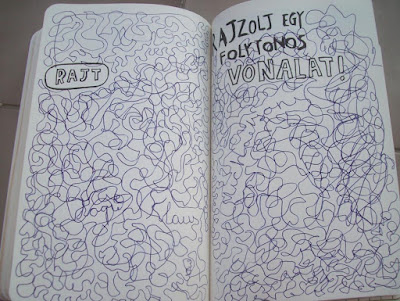 RAJT
RAJZOLJ EGY
FOLYTONOS
VONALAT!